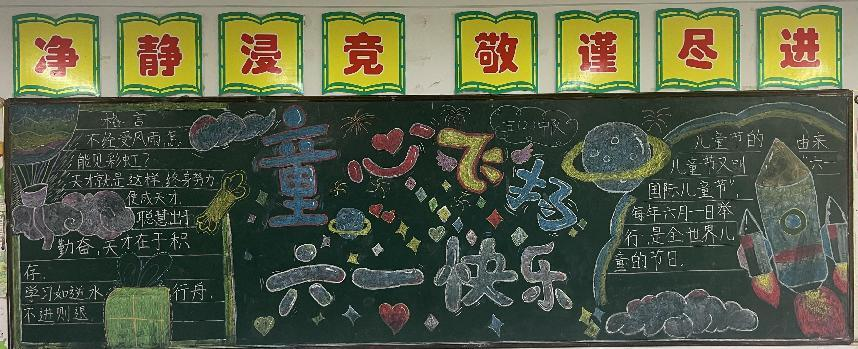 净 静 浸 竞 敬 谨 尽 进
格言
不经受风雨怎
能见彩虹？
天才就是这样，终身努力
便成天才。
聪慧出于
勤奋，天才在于积
存.
学习如逆水行舟，
不进则退
童心飞扬
六一快乐
儿童节的由来
儿童节又叫“六一
国际儿童节”
每年六月一日举
行,是全世界儿
童的节日.